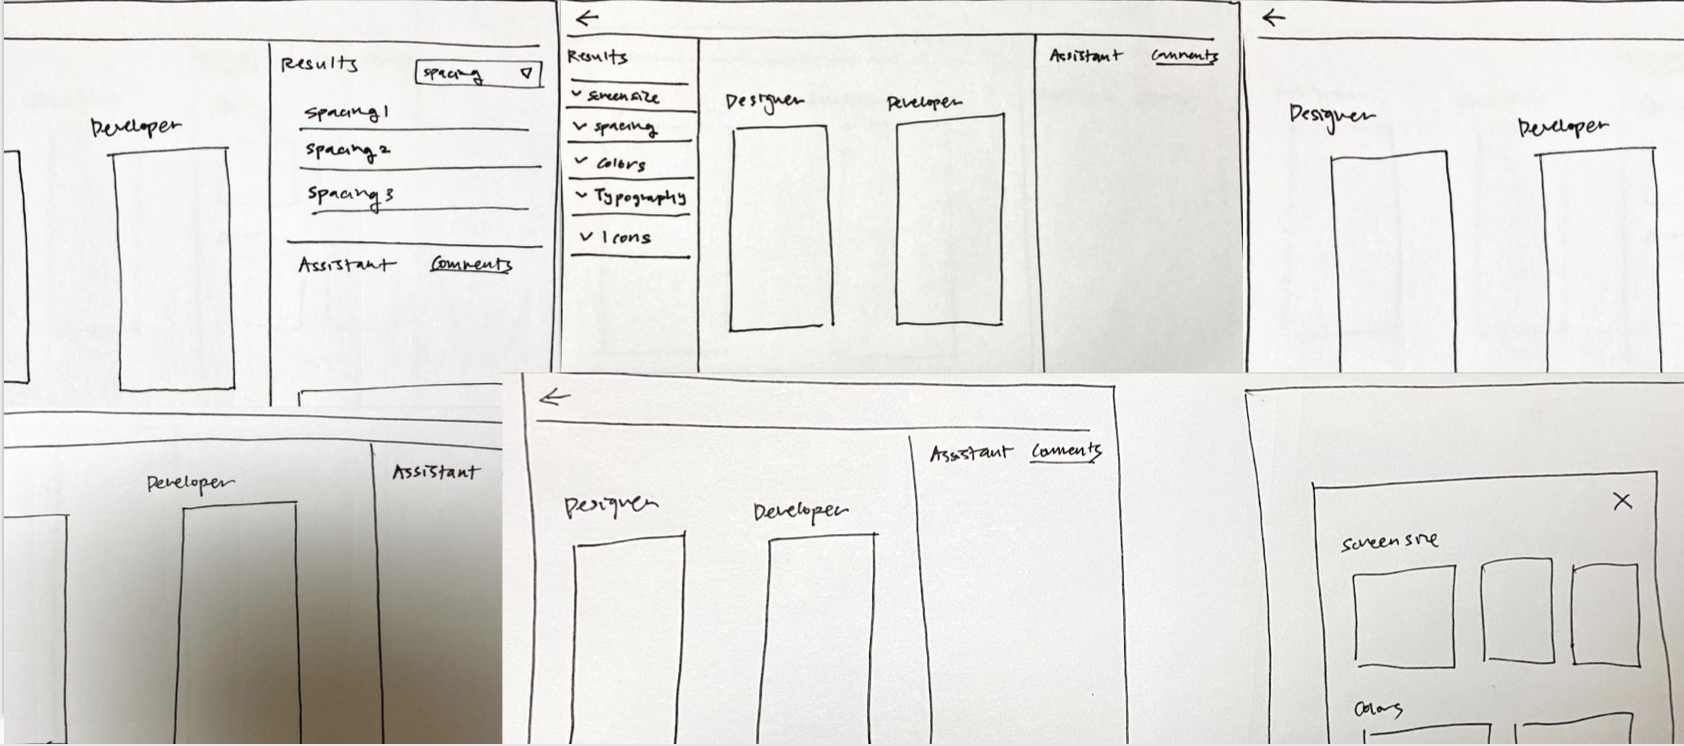 Results
spacing
Developer
spacing 1
spacing 2
spacing 3
Assistant Comments
Results
screen size
spacing
colors
Typography
Icons
Designer Developer
Assistant Comments
Designer
Developer
Developer
Assistant
Designer Developer
Assistant Comments
screen size
colors